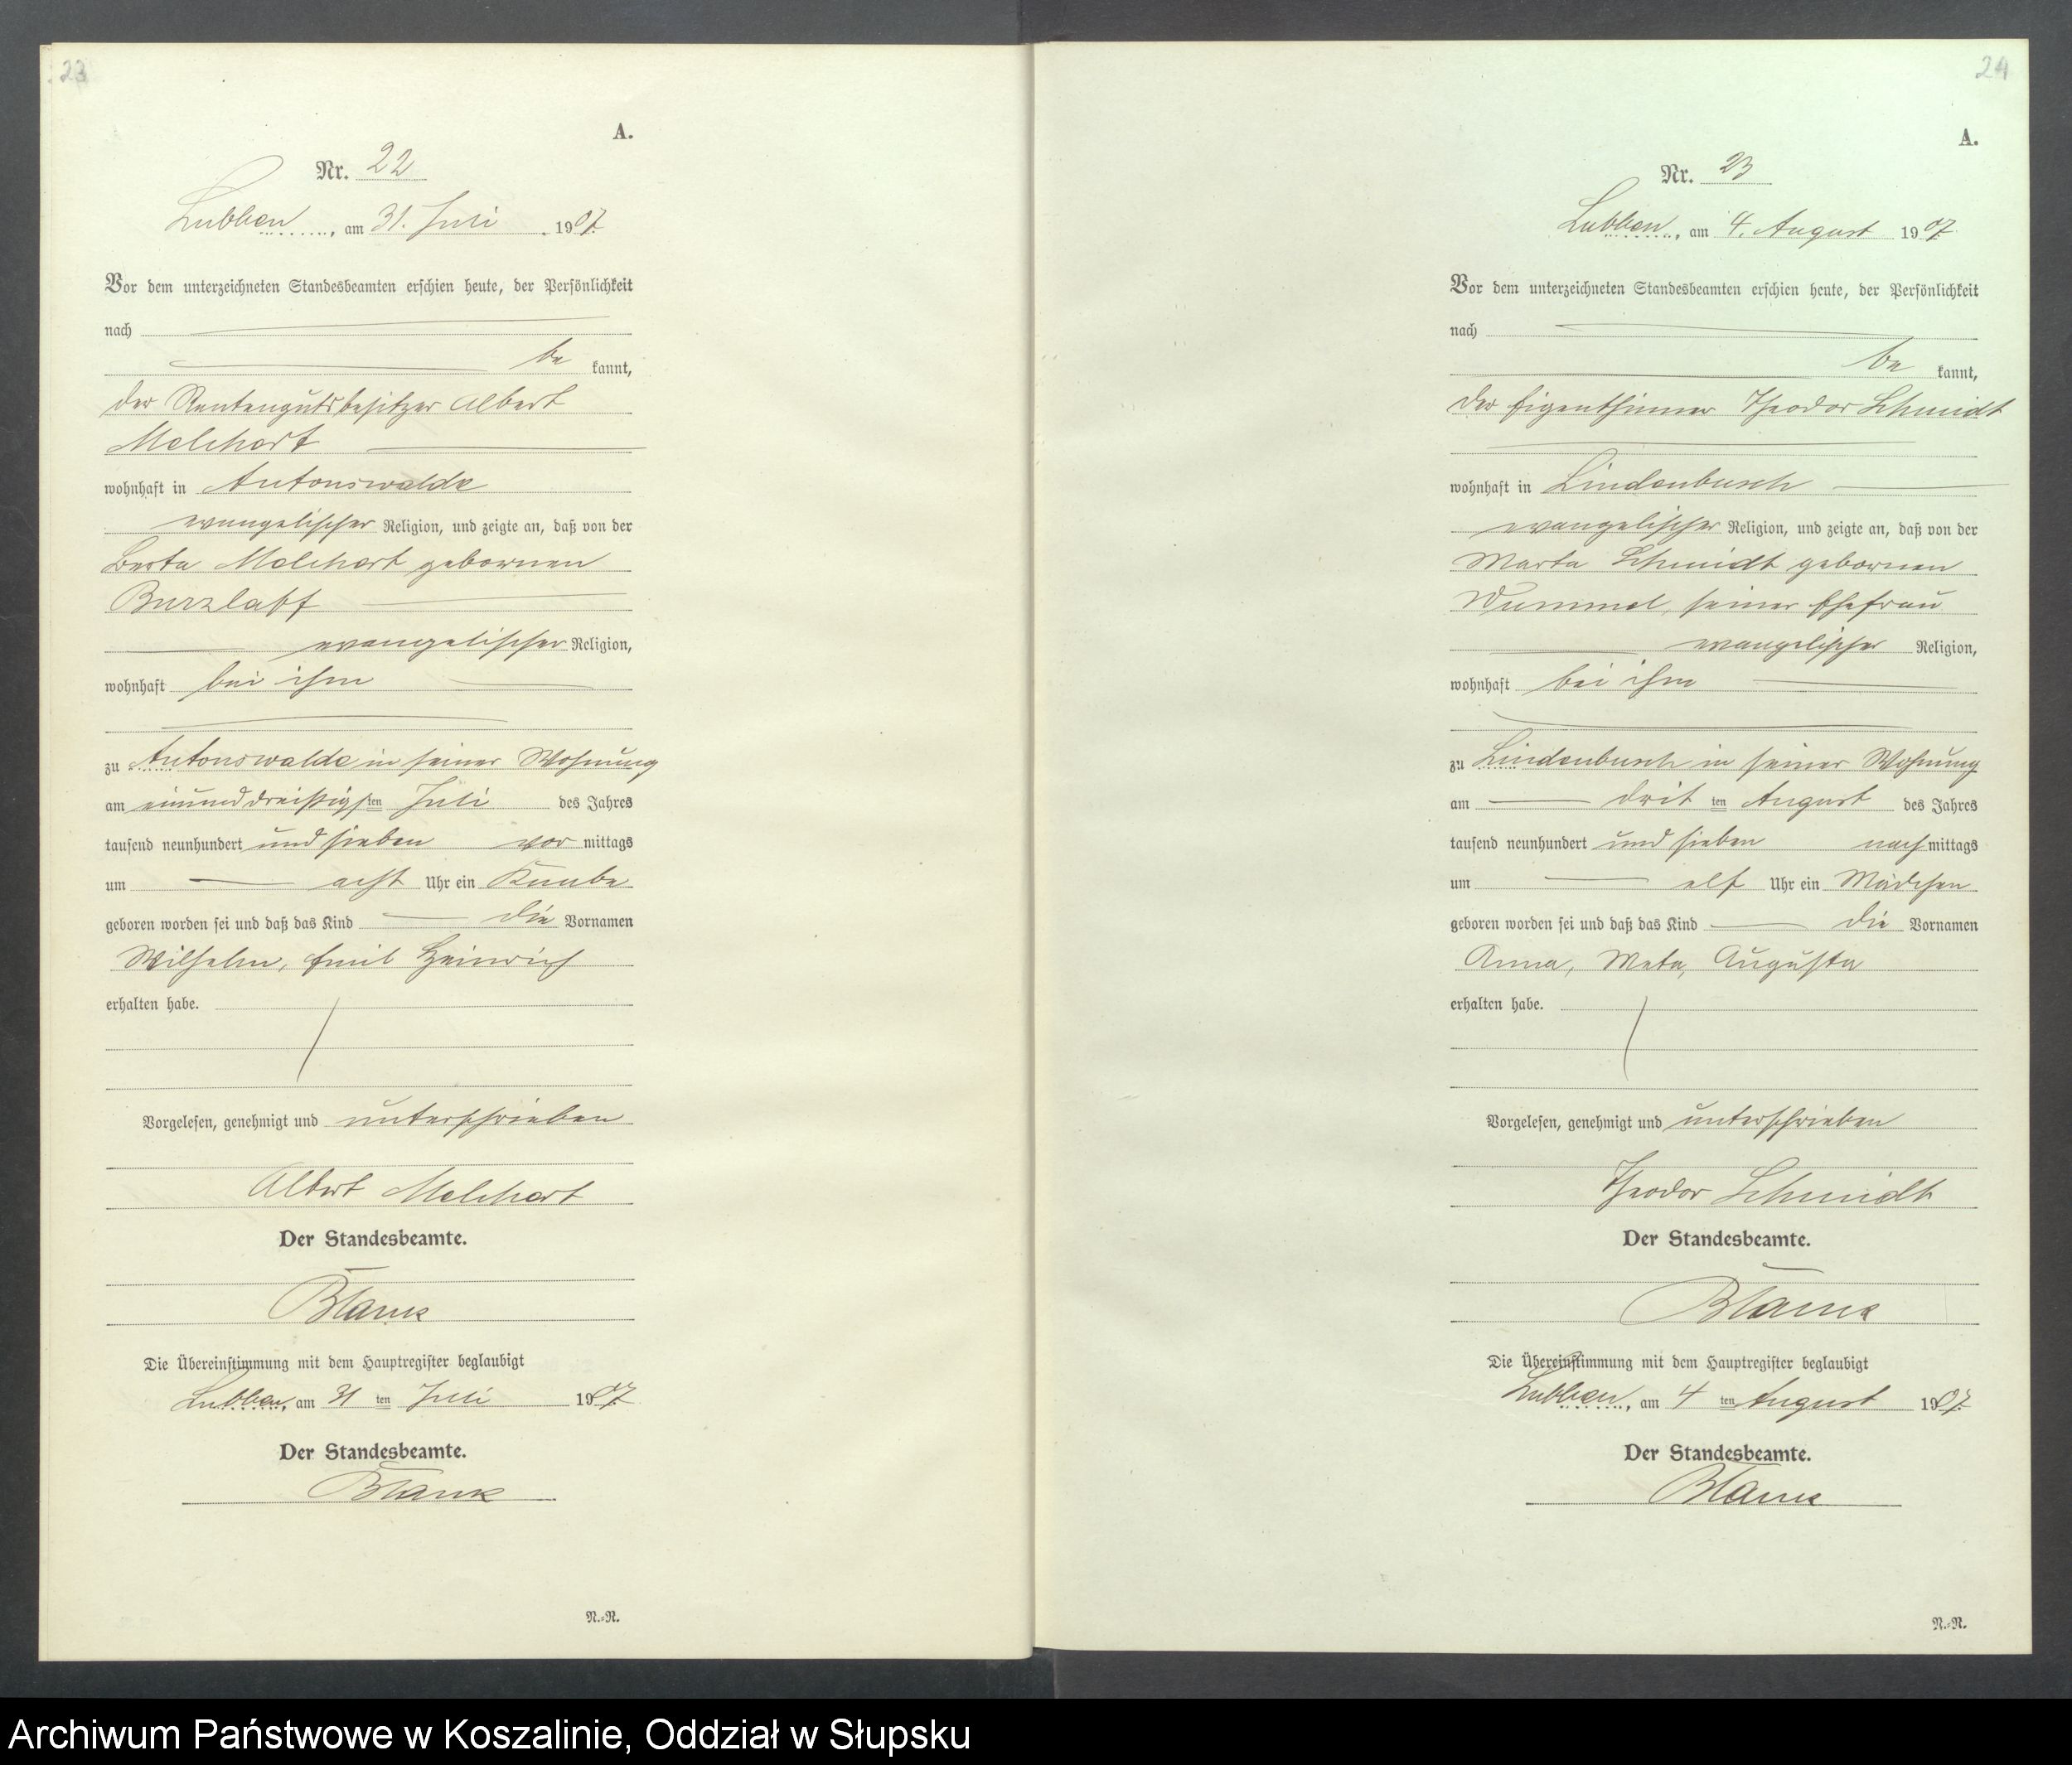 23
A.
Nr. 22
Lubben, am 31. Juli 1907.
Vor dem unterzeichneten Standesbeamten erschien heute, der Persönlichkeit
nach
be kannt,
der Rentengutsbesitzer Albert
Melchert
wohnhaft in Antonswalde
evangelischer Religion, und zeigte an, daß von der
Berta Melchert gebornen
Burzlaff
evangelischer Religion,
wohnhaft bei ihm
zu Antonswalde in seiner Wohnung
am einunddreißigsten Juli des Jahres
tausend neunhundert und sieben vor mittags
um acht Uhr ein Knabe
geboren worden sei und daß das Kind die Vornamen
Wilhelm, Emil Heinrich
erhalten habe.
Vorgelesen, genehmigt und unterschrieben
Albert Melchert
Der Standesbeamte.
Blank
Die Übereinstimmung mit dem Hauptregister beglaubigt
Lubben, am 31 ten Juli 1907.
Der Standesbeamte.
Blank
N.=N.
24
A.
Nr. 23
Lubben, am 4. August 1907.
Vor dem unterzeichneten Standesbeamten erschien heute, der Persönlichkeit
nach
be kannt,
der Eigenthümer Theodor Schmidt
wohnhaft in Lindenbusch
evangelischer Religion, und zeigte an, daß von der
Marta Schmidt gebornen
Wummel, seiner Ehefrau
evangelischer Religion,
wohnhaft bei ihm
zu Lindenbusch in seiner Wohnung
am drit ten August des Jahres
tausend neunhundert und sieben nach mittags
um elf Uhr ein Mädchen
geboren worden sei und daß das Kind die Vornamen
Anna, Meta, Augusta
erhalten habe.
Vorgelesen, genehmigt und unterschrieben
Theodor Schmidt
Der Standesbeamte.
Blank
Die Übereinstimmung mit dem Hauptregister beglaubigt
Lubben, am 4 ten August 1907.
Der Standesbeamte.
Blank
N.=N.
Archiwum Państwowe w Koszalinie, Oddział w Słupsku